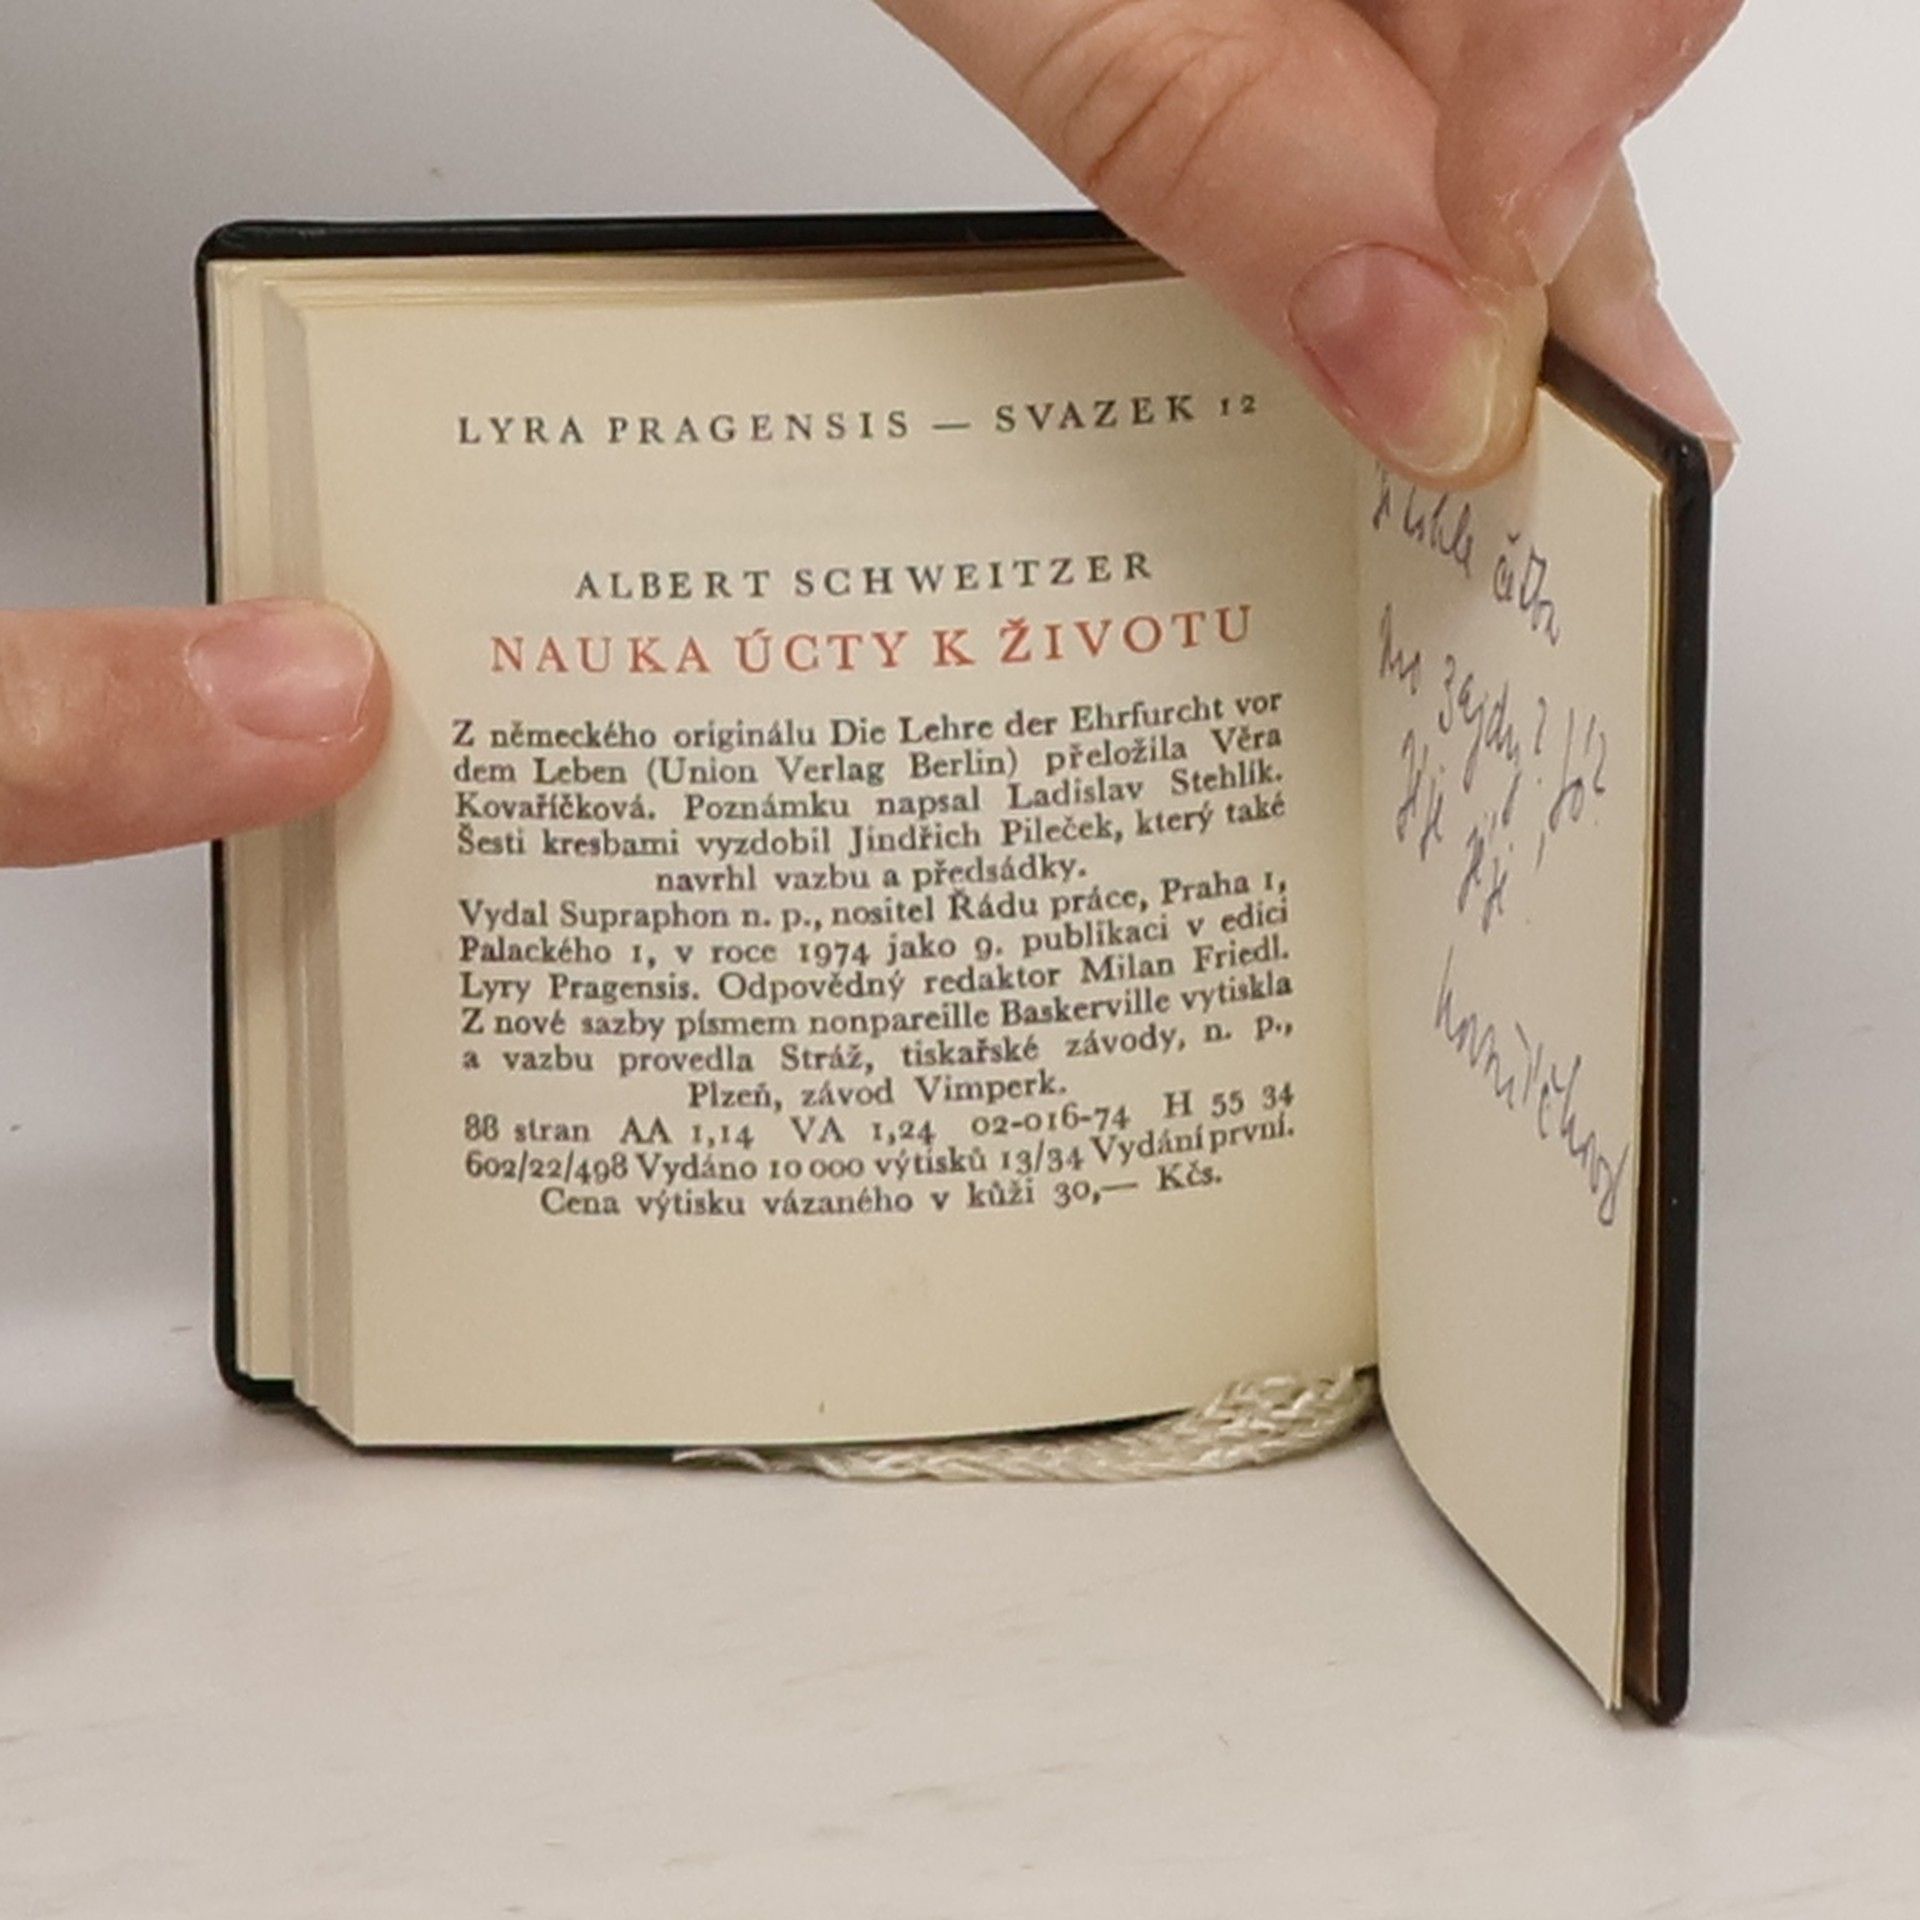 LYRA PRAGENSIS — SVAZEK 12
ALBERT SCHWEITZER
NAUKA ÚCTY K ŽIVOTU
Z německého originálu Die Lehre der Ehrfurcht vor
dem Leben (Union Verlag Berlin) přeložila Věra
Kovaříčková. Poznámku napsal Ladislav Stehlík.
Šesti kresbami vyzdobil Jindřich Pileček, který také
navrhl vazbu a předsádky.
Vydal Supraphon n. p., nositel Řádu práce, Praha 1,
Palackého 1, v roce 1974 jako 9. publikaci v edici
Lyry Pragensis. Odpovědný redaktor Milan Friedl.
Z nové sazby písmem nonpareille Baskerville vytiskla
a vazbu provedla Stráž, tiskařské závody, n. p.,
Plzeň, závod Vimperk.
88 stran AA 1,14 VA 1,24 02-016-74 H 55 34
602/22/498 Vydáno 10 000 výtisků 13/34 Vydání první.
Cena výtisku vázaného v kůži 30,— Kčs.